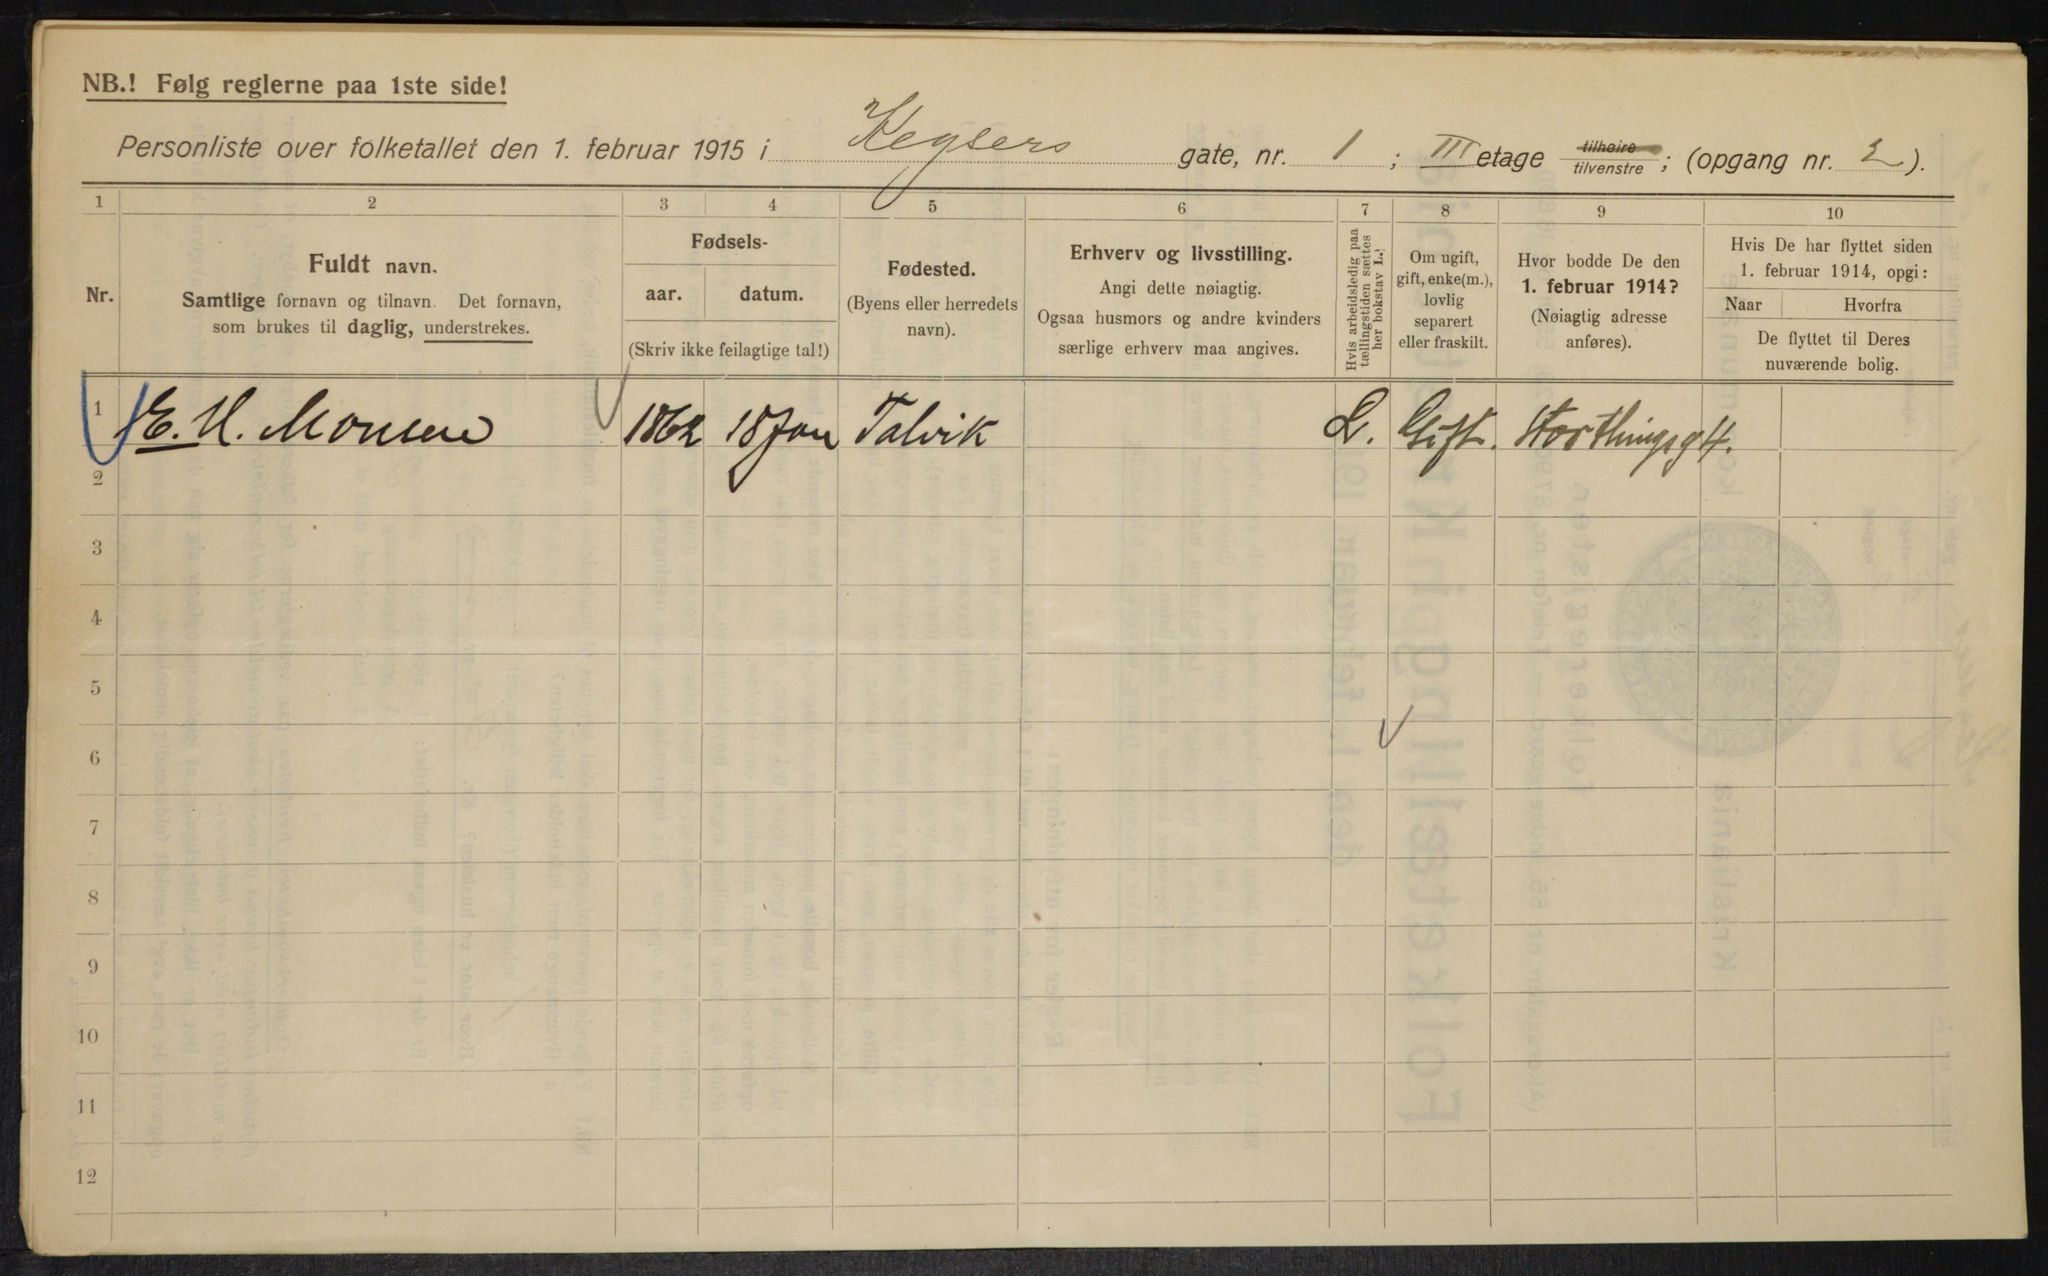 NB.! Følg reglerne paa 1ste side!
Personliste over folketallet den 1. februar 1915 i Keysers gate, nr. 1; III etage tilhøire tilvenstre; (opgang nr. 2).
1 2 3 4 5 6 7 8 9 10
Nr.
Fuldt navn.
Samtlige fornavn og tilnavn. Det fornavn,
som brukes til daglig, understrekes.
Fødsels-
aar. datum.
(Skriv ikke feilagtige tal!)
Fødested.
(Byens eller herredets
navn).
Erhverv og livsstilling.
Angi dette nøiagtig.
Ogsaa husmors og andre kvinders
særlige erhverv maa angives.
Hvis arbeidsledig paa
tællingstiden sættes
her bokstav L.!
Om ugift,
gift, enke(m.),
lovlig
separert
eller fraskilt.
Hvor bodde De den
1. februar 1914?
(Nøiagtig adresse
anføres).
Hvis De har flyttet siden
1. februar 1914, opgi:
Naar Hvorfra
De flyttet til Deres
nuværende bolig.
1 E. H. Monsen 1862 18 Jan Talvik L. Gift. Storthingsg 4.
2
3
4
5
6
7
8
9
10
11
12